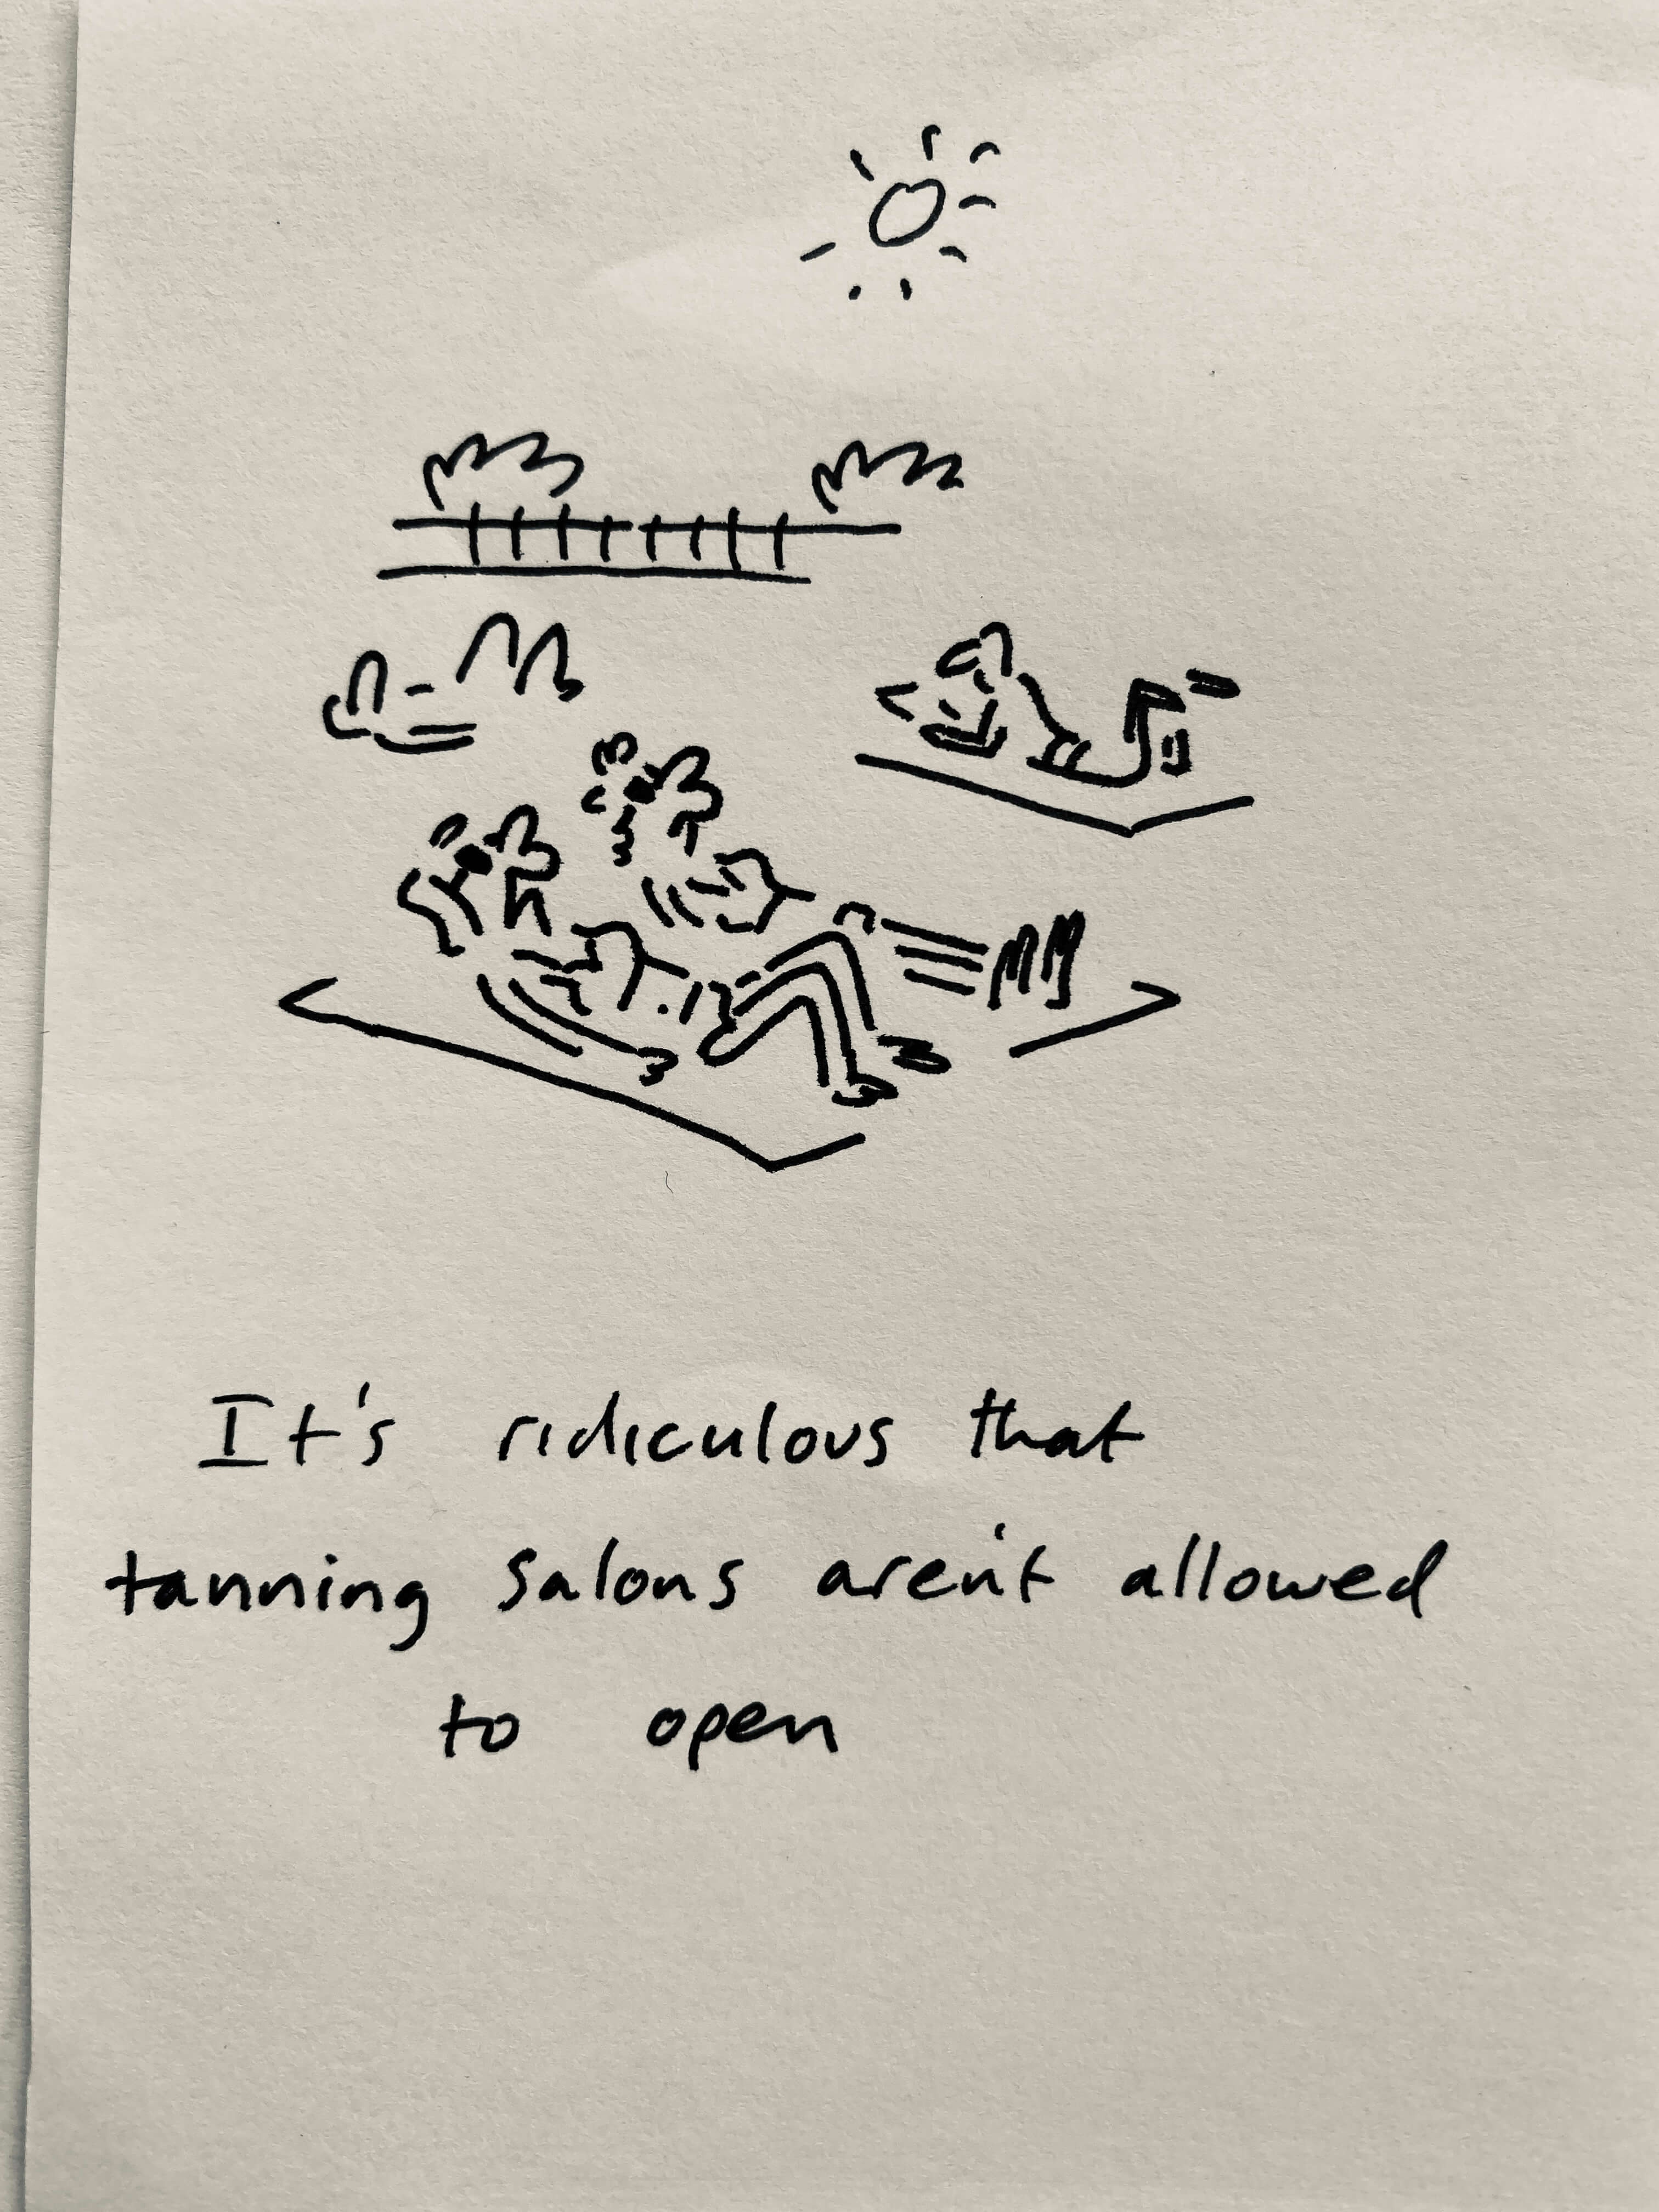 It's ridiculous that
tanning salons aren't allowed
to open